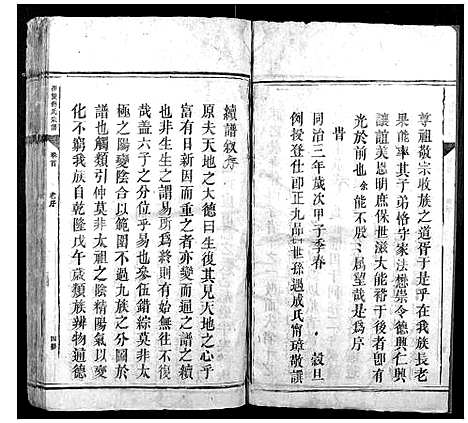 尊祖敬宗收族之道胥于是乎在我族長老
果能率其子弟恪守家法懋崇令德興仁興
讓誼美恩明庶保世滋大能裕于後者即有
光於前也余能不殷々属望哉是爲序
旹
同治三年歲次甲子季春 穀旦
例授登仕郎正九品世孫遇成氏甯璋敬譔
續譜叙序
原夫天地之大德曰生復其見天地之心乎
富有日新因而重之者變而通之譜之續
也非生生之謂易所爲終則有始無往不復
哉蓋六子之分位乎易也參伍錯綜莫非太
極之陽變陰合以範圍不過九族之分圖於
譜也觸類引伸莫非太祖之陰精陽氣以變
化不窮我族自乾隆戊午歲類族辨物通德
氏宗譜
卷首
老序
四